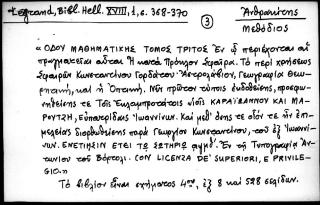 Legrand, Bibl. Hell. XVIII, 1, σ. 368-370
③
Ἀνθρακίτης
Μεθόδιος
« ΟΔΟΥ ΜΑΘΗΜΑΤΙΚΗΣ ΤΟΜΟΣ ΤΡΙΤΟΣ. Ἐν ᾧ περιέχονται αἱ
πραγματεῖαι αὗται. Ἡ κατὰ Πρόκλον Σφαῖρα. Τὸ περὶ χρήσεως
Σφαιρῶν Κωνσταντίνου Γορδάτου. Ἀστρολάβιον, Γεωγραφία Θεω-
ρητική, καὶ ἡ Ὀπτική. Νῦν πρῶτον τύποις ἐκδοθεῖσαι, προσφω-
νηθεῖσαι τε Τοῖς Ἐκλαμπροτάτοις ΚΑΡΑΪΩΑΝΝΟΥ ΚΑΙ ΜΑ-
ΡΟΥΤΖΗ, Εὐπατρίδαις Ἰωαννίνων. Καὶ μεθ' ὅσης τε οἷόν τε ἦν ἐπι-
μελείας διορθωθεῖσαι παρὰ Γεωργίου Κωνσταντίνου, τοῦ ἐξ Ἰωαννί-
νων. ΕΝΕΤΙΗΣΙΝ ΕΤΕΙ ΤΩ ΣΩΤΗΡΙΩ αψμθʹ. Ἐν τῇ Τυπογραφίᾳ Ἀν-
τωνίου τοῦ Βόρτολι. CON LICENZA DE' SUPERIORI, E PRIVILE-
GIO. »
Τὸ βιβλίον εἶναι σχήματος 4ου, ἐξ 8 καὶ 528 σελίδων.